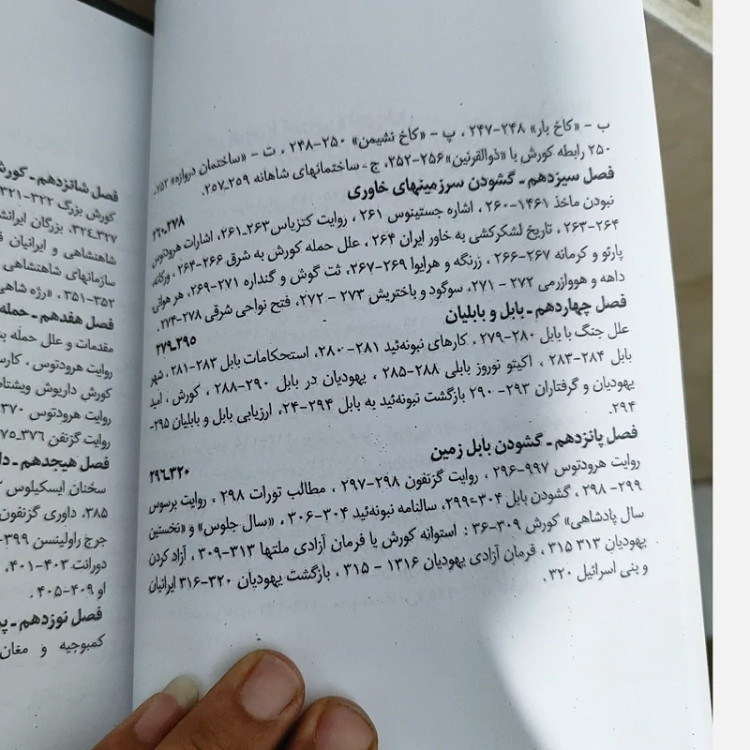 ب - «کاخ بار» ۲۴۸-۲۴۷ ، پ - «کاخ نشیمن» ۲۵۰-۲۴۸ ، ت - «ساختمان دروازه» ۲۵۲ـ
۲۵۰ رابطه کورش با «ذوالقرنین» ۲۵۶-۲۵۲، ج - ساختمانهای شاهانه ۲۵۹ـ۲۵۷.
فصل سیزدهم ـ گشودن سرزمینهای خاوری
۲۶۰ـ۲۷۸
نبودن ماخذ ۱۴۶۱-۲۶۰ ، اشاره جستینوس ۲۶۱ ، روایت کتزیاس ۲۶۳-۲۶۱، اشارات هرودتوس
۲۶۴-۲۶۳ ، تاریخ لشکرکشی به خاور ایران ۲۶۴ ، علل حمله کورش به شرق ۲۶۶-۲۶۴ ،
پارتو و کرمانه ۲۶۷-۲۶۶ ، زرنگه و هرایوا ۲۶۹-۲۶۷، ثت گوش و گنداره ۲۷۱-۲۶۹،
داهه و هووارزمی ۲۷۲ - ۲۷۱ ، سوگود و باختریش ۲۷۳ - ۲۷۲، فتح نواحی شرقی ۲۷۸-۲۷۴.
فصل چهاردهم ـ بابل و بابلیان
۲۷۹ـ۲۹۵
علل جنگ با بابل ۲۸۰-۲۷۹ ، کارهای نبونه‌ئید ۲۸۱ - ۲۸۰، استحکامات بابل ۲۸۳-۲۸۱، شهر
بابل ۲۸۴-۲۸۳ ، اکیتو نوروز بابلی ۲۸۸-۲۸۵ ، یهودیان در بابل ۲۹۰-۲۸۸ ، کورش ، امید
یهودیان و گرفتاران ۲۹۳- ۲۹۰ بازگشت نبونه‌ئید به بابل ۲۹۴-۲۴، ارزیابی بابل و بابلیان ۲۹۵-
۲۹۴.
فصل پانزدهم ـ گشودن بابل زمین
۲۹۶ـ۳۲۰
روایت هرودتوس ۹۹۷-۲۹۶ ، روایت گزنفون ۲۹۸-۲۹۷ ، مطالب تورات ۲۹۸ ، روایت برسوس
۲۹۹- ۲۹۸ ، گشودن بابل ۳۰۴-۲۹۹، سالنامه نبونه‌ئید ۳۰۴-۳۰۶ ، «سال جلوس» و «نخستین
سال پادشاهی» کورش ۳۰۹-۳۶ : استوانه کورش یا فرمان آزادی ملتها ۳۱۳-۳۰۹ ، آزاد کردن
یهودیان ۳۱۳ ۳۱۵ ، فرمان آزادی یهودیان ۱۳۱۶ - ۳۱۵ ، بازگشت یهودیان ۳۲۰-۳۱۶ ایرانیان
و بنی اسرائیل ۳۲۰ .
فصل شانزدهم ـ
کورش بزرگ ۳۲۲-۳۲۱
۳۲۷ـ۳۲۴، بزرگان
شاهنشاهی و ایرانیان
سازمانهای شاهنشاهی
۳۵۲-۳۵۱ ، «رژه
فصل هفدهم ـ حمله
مقدمات و علل حمله
روایت هرودتوس ،
کورش داریوش
روایت هرودتوس ۳۷۰
روایت گزنفن ۳۷۶ـ۳۷۵
فصل هیجدهم ـ
سخنان ایسکیلوس
۳۸۵، داوری گزنفون
جرج راولینسن ۳۹۹-
دورانت ۴۰۳-۴۰۱ ،
او ۴۰۹-۴۰۵ .
فصل نوزدهم ـ
کمبوجیه و مغان